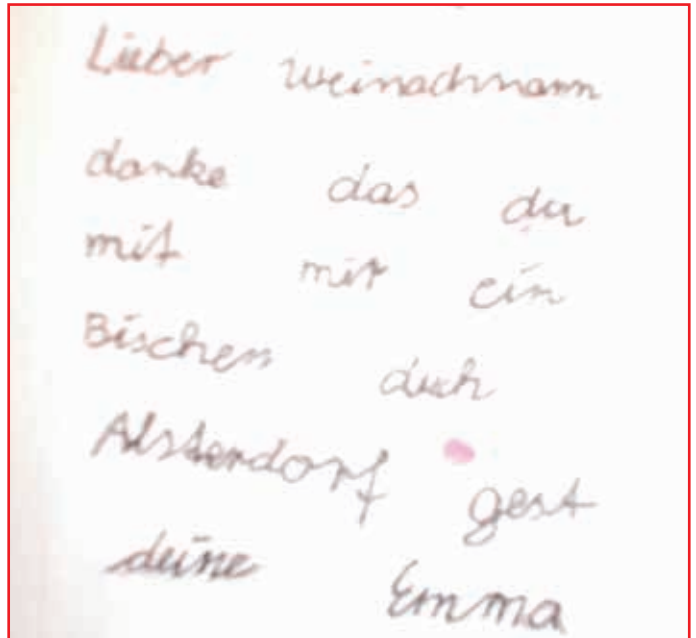 Lieber Weinachmann
danke das du
mit mir ein
Bischen duch
Alsterdorf gest
deine Emma